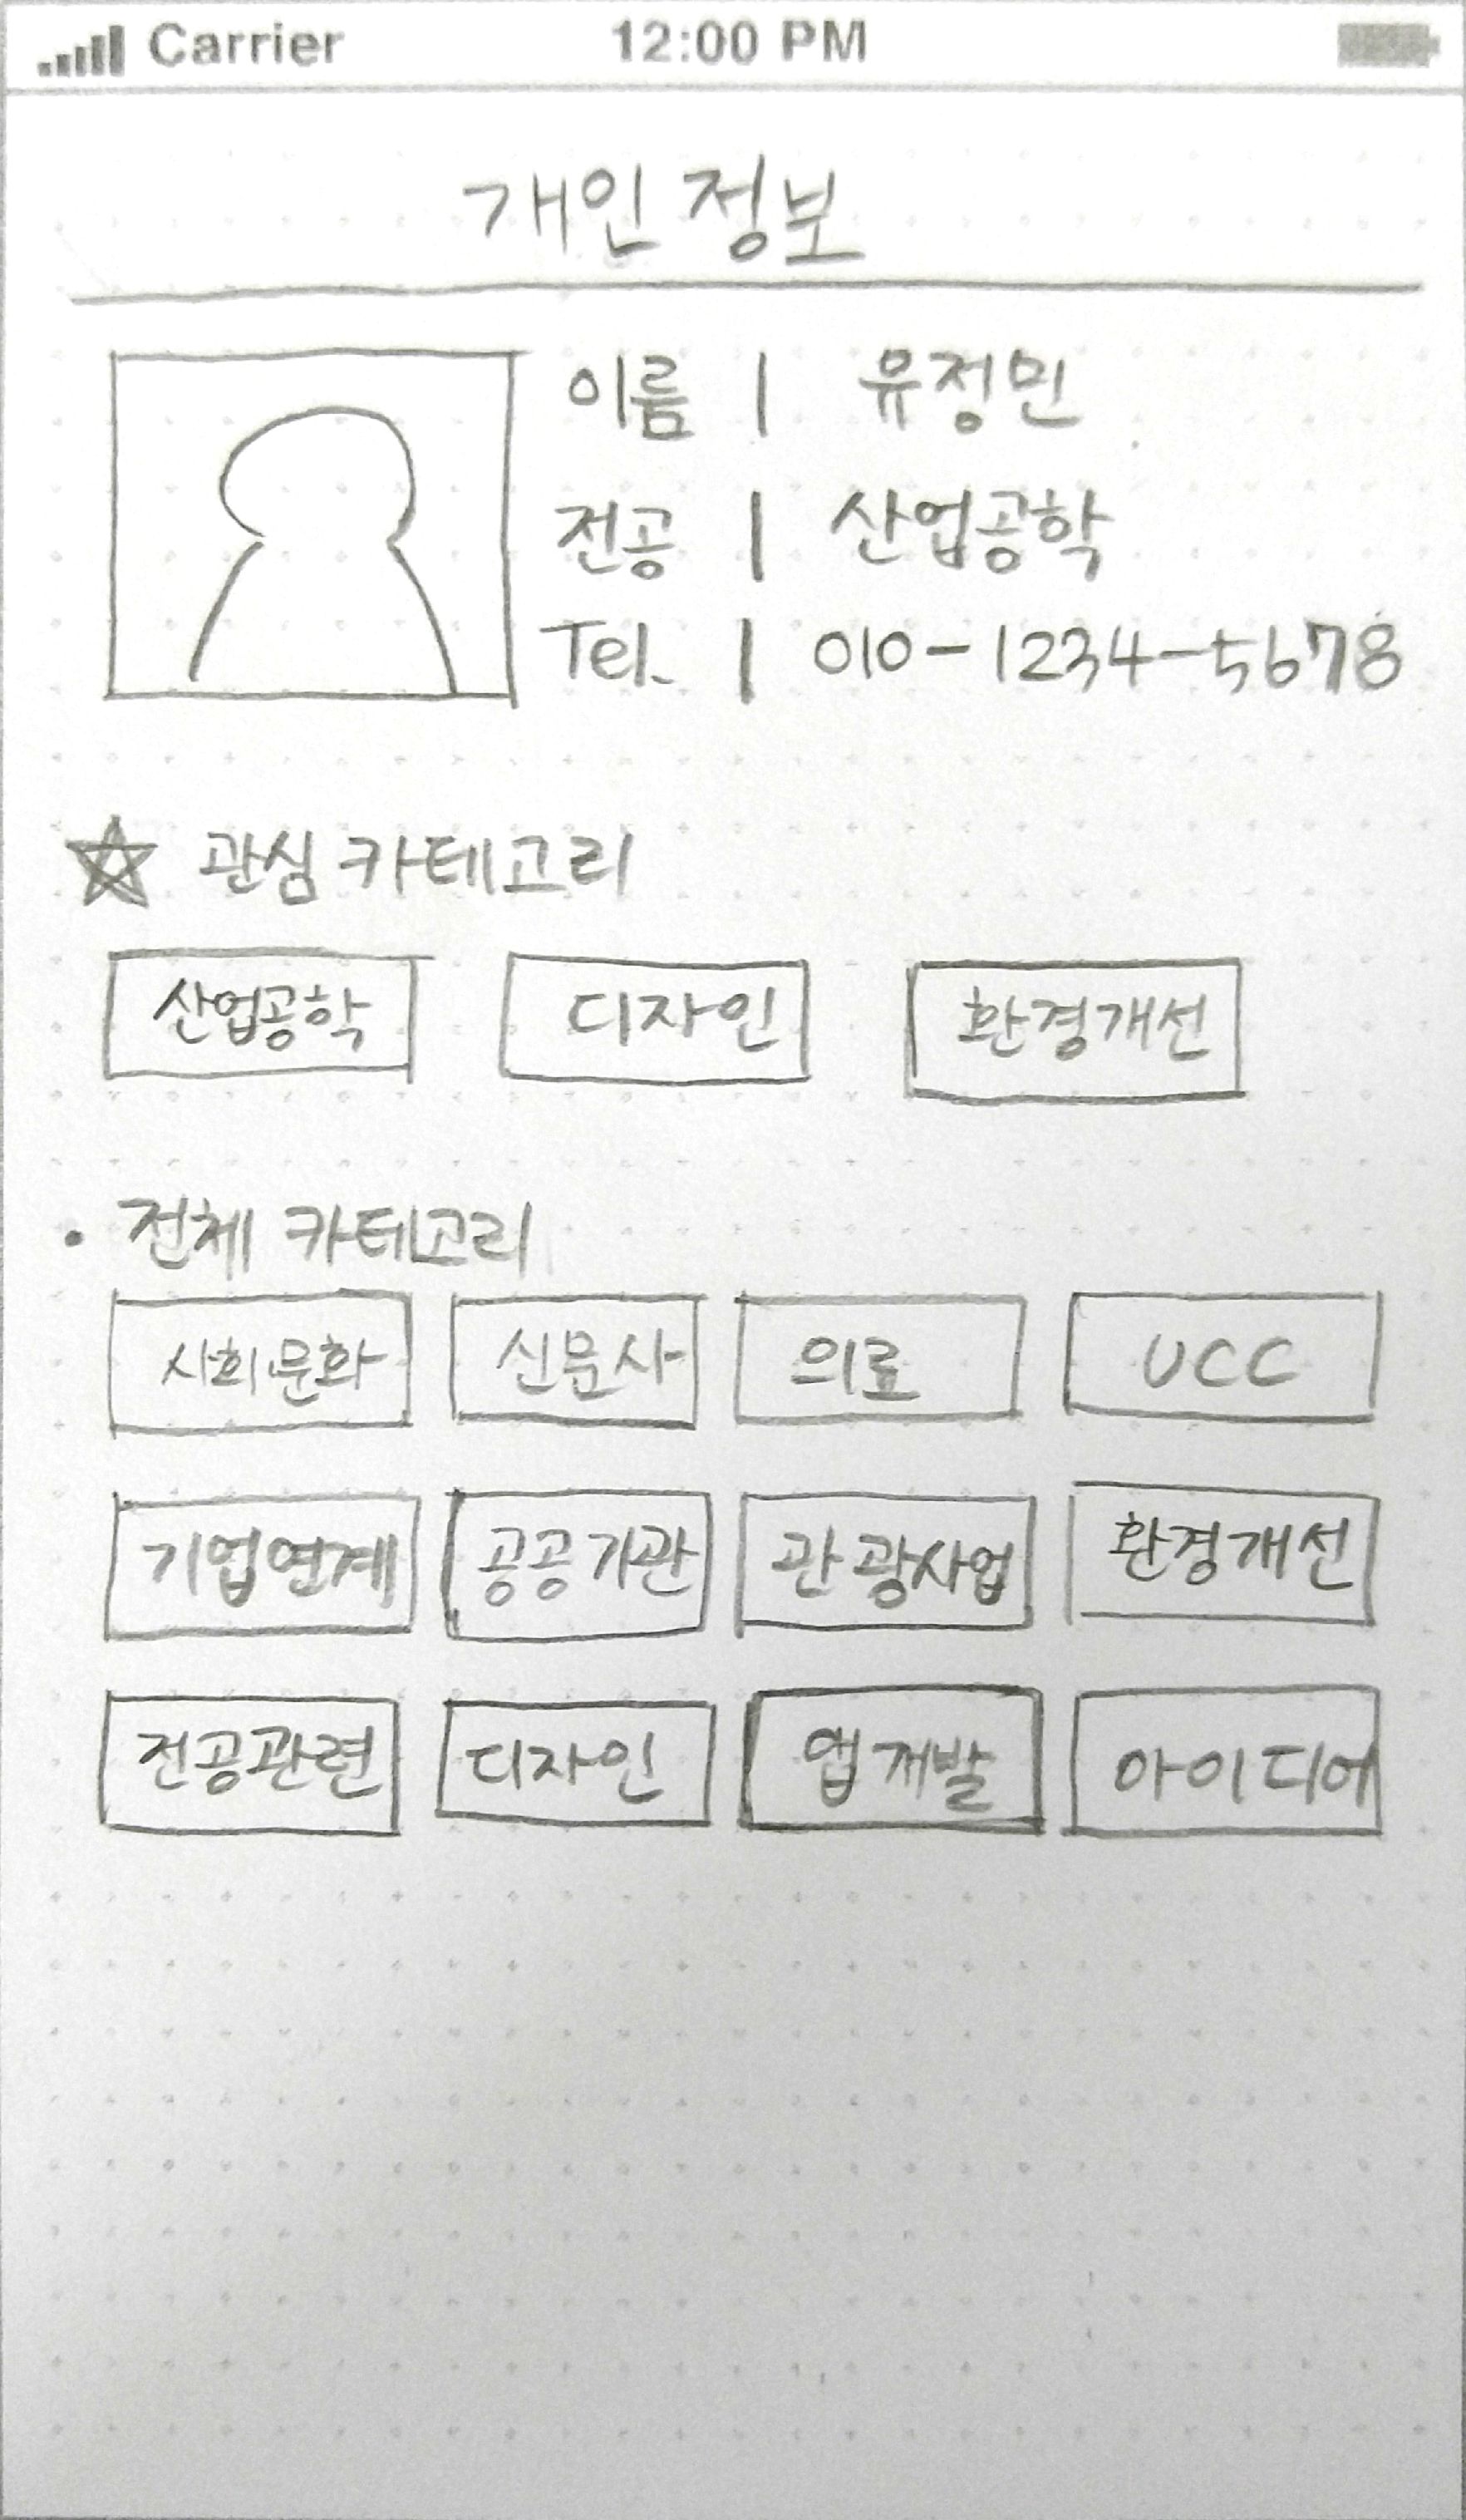 Carrier 12:00 PM
개인 정보
이름 | 유정민
전공 | 산업공학
Tel. | 010-1234-5678
☆ 관심 카테고리
산업공학 디자인 환경개선
• 전체 카테고리
사회문화 신문사 의료 UCC
기업연계 공공기관 관광사업 환경개선
전공관련 디자인 앱개발 아이디어